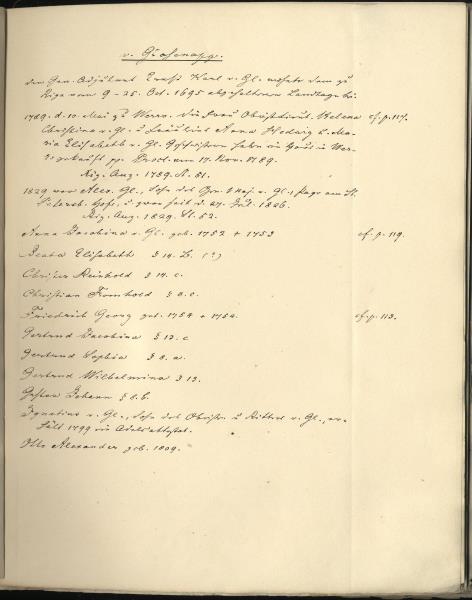 v. Glasenapp.
Der Gen. Adjutant Ernst Karl v. Gl. wohnte dem zu
Riga vom 9-25. Oct. 1695 abgehaltenen Landtage bei.
1789. d. 10. Mai zu Werro. Die Frau Obristlieut. Helena cf. p. 117.
Christina v. Gl. u Fräulein Anna Hedwig u. Ma-
ria Elisabeth v. Gl. Geschwister haben ein Haus in Wer-
ro gekauft pp. Procl. vom 17. Nov. 1789.
Rig. Anz. 1789. N. 51.
1829 war Alex. Gl., Sohn des Gen. Maj. v. Gl., Page am St.
Petersb. Hofe, u zwar seit d. 27. Jul. 1826.
Rig. Anz. 1829. St. 52.
Anna Jacobina v. Gl. geb. 1752 + 1753 cf. p. 119.
Beata Elisabeth § 14. b. (?)
Christer Reinhold § 14. c.
Christian Fromhold § 8. c.
Friedrich Georg geb. 1754 + 1754. cf. p. 113.
Gertrud Jacobina § 12. c
Gertrud Sophia § 8. a.
Gertrud Wilhelmina § 13.
Gustav Johann § 6. b.
Ignatius v. Gl., Sohn des Obristen u Ritters v. Gl., er-
hält 1799 ein Adelsattestat.
Otto Alexander geb. 1809.